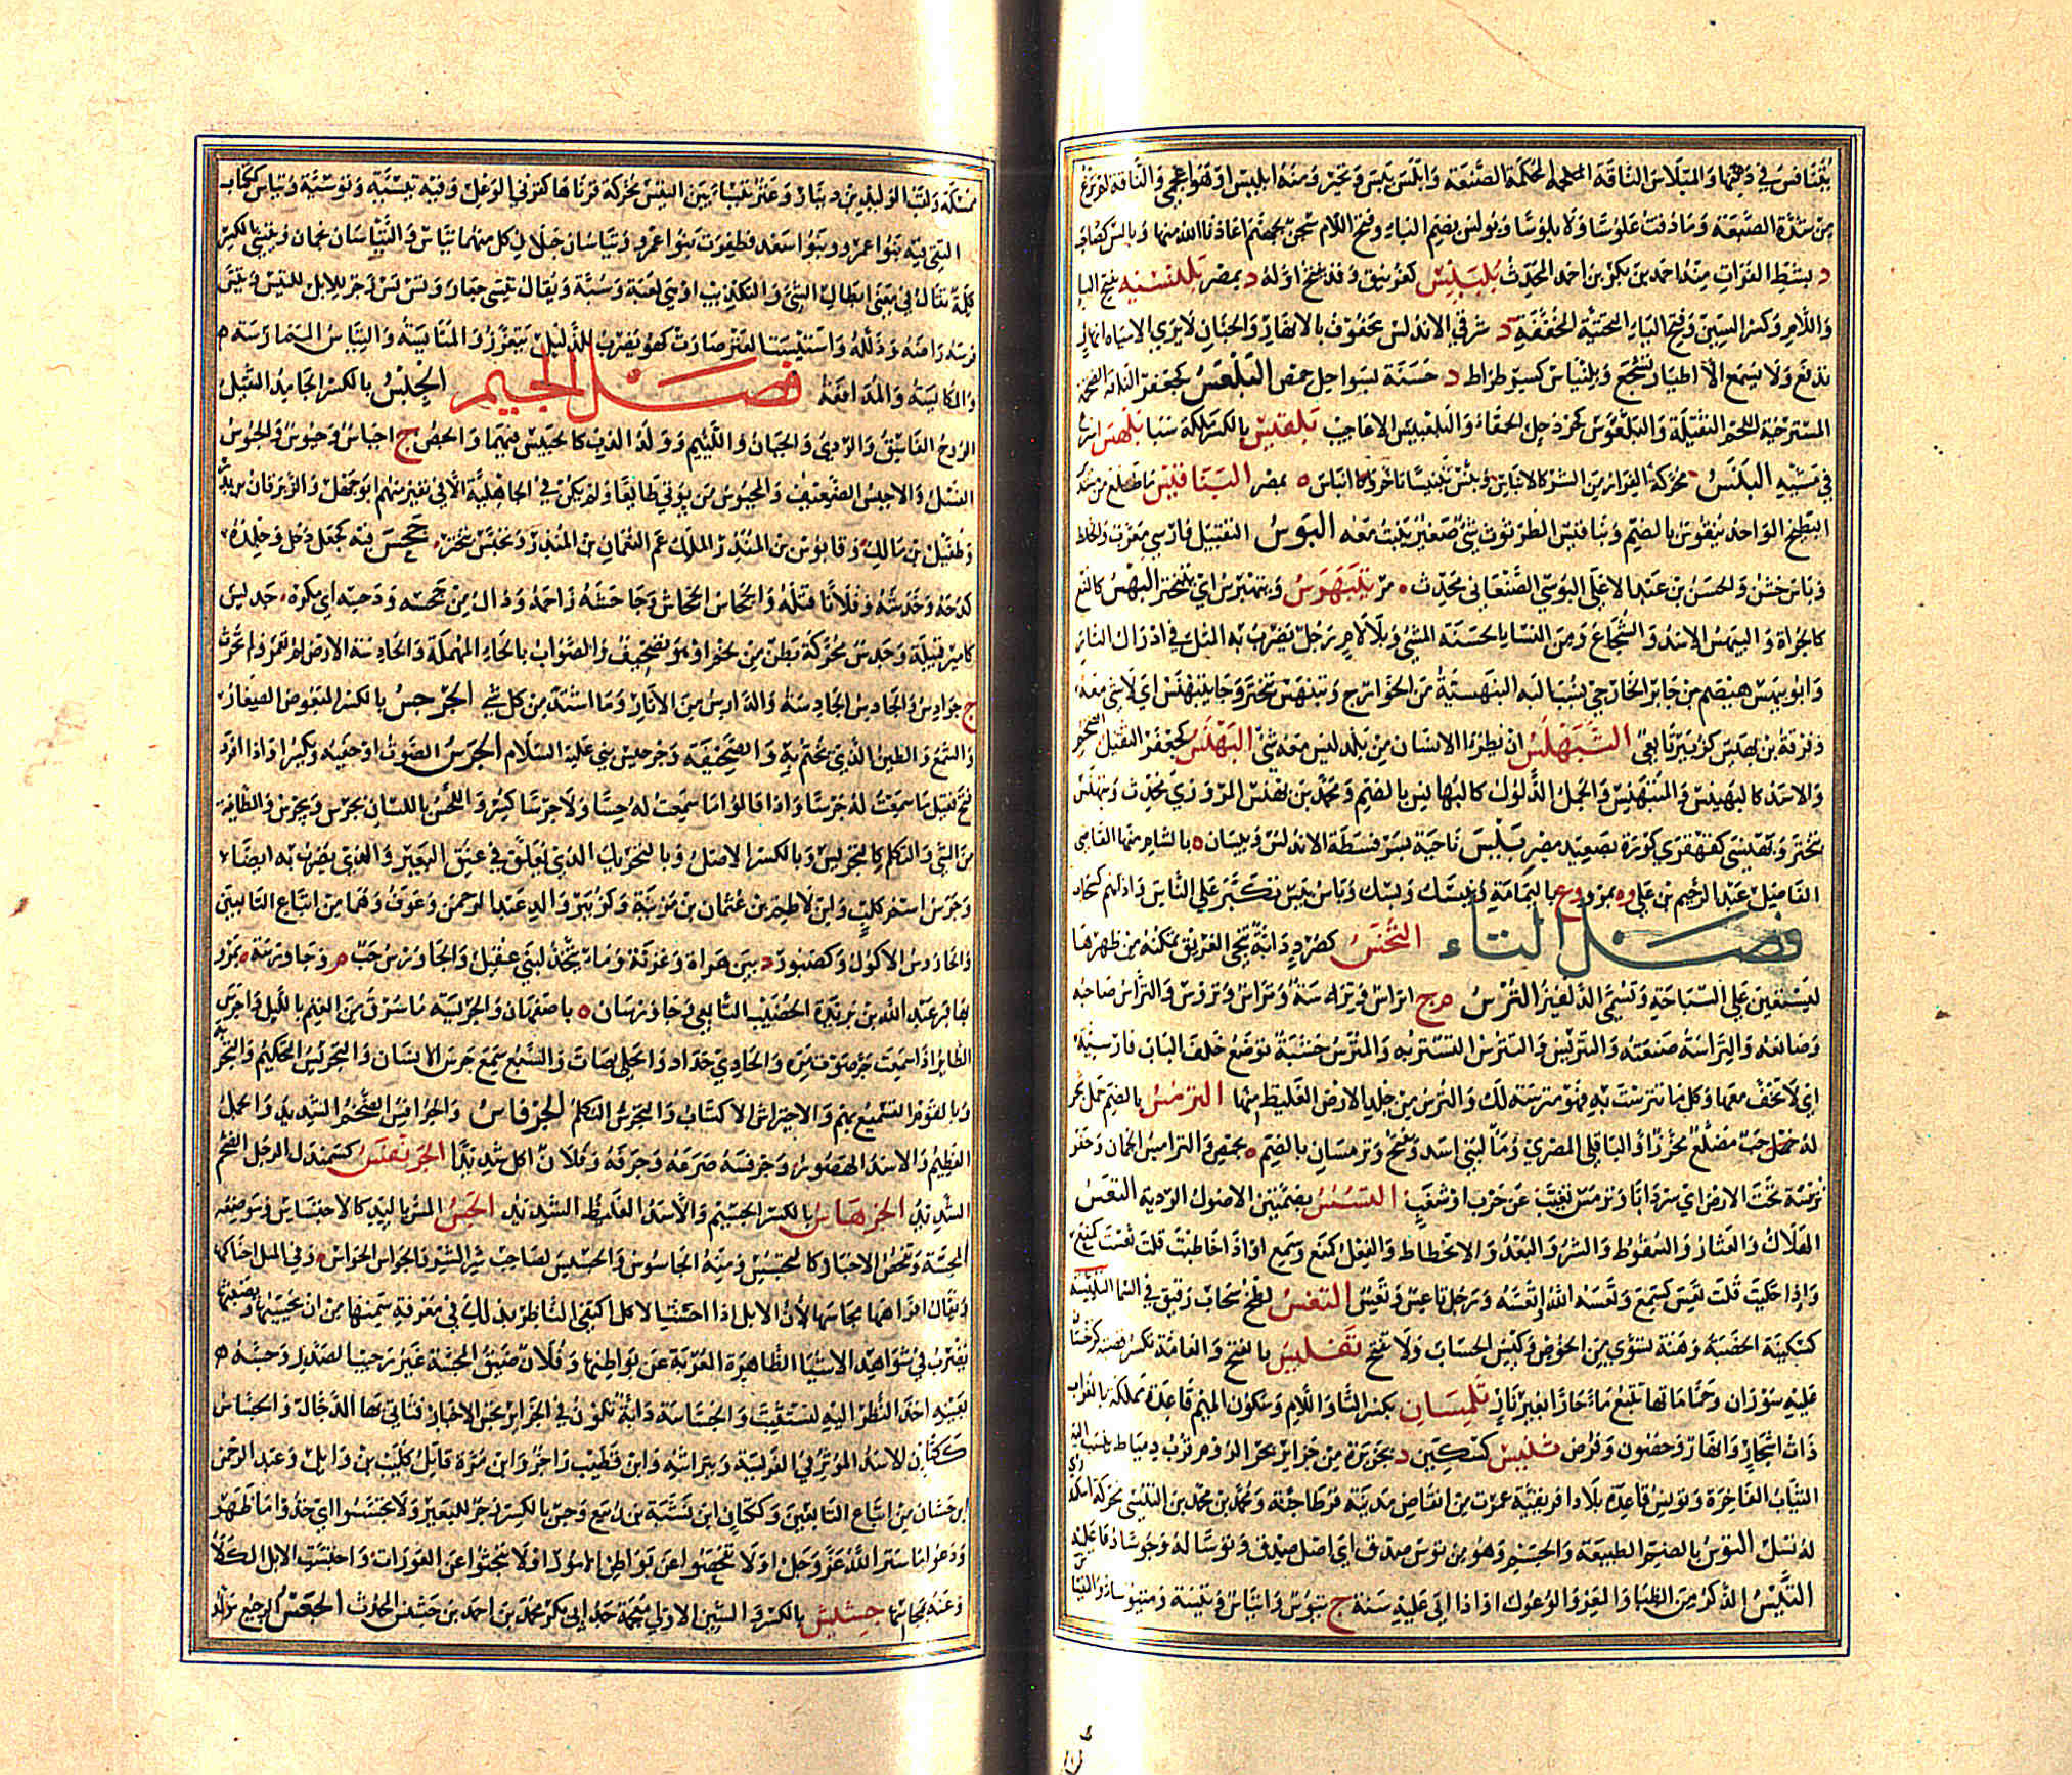 في والمبلاس الناقة المحكمة الصنعة وابلس يئس وتحير ومنه ابليس او هو اعجمي والناقة لم ترغ
من شدة الضبعة وما ذقت علوسا ولا بلوسا وبولس بضم الباء وفتح اللام سجن بجهنم اعاذنا الله منها وبالس كصاحب
د بشط الفرات منه احمد بن بكر بن احمد المحدث بلبيس كغرنيق وقد يفتح اوله د بمصر بلنسية بفتح البا
واللام وكسر السين وفتح الياء التحتية المخففة د شرقي الاندلس محفوف بالانهار والجنان لا يرى الا مياه
تدفع ولا يسمع الا اطيار تسجع وبلنياس د حسنة بسواحل حمص البلعس كجعفر الناقة الضخمة
المسترخية اللحم الثقيلة والبلعوس كحردحل الحمقاء والبلعبيس الاعاجيب بلقيس بالكسر ملكة سبا بلهس اسرع
في مشيه البنس محركة الفرار من الشر كالابناس وبنس تبنيسا تاخر البناقيس ما طلع من
البطيخ الواحد بنقوس بالضم وبناقيس الطرثوث شئ صغير ينبت معه البوس التقبيل فارسي معرب والخلط
وباس خشن والحسن بن عبد الاعلى البوسي الصنعاني محدث مر يتبهرس ويتهبرس اي يتبختر البهس كالمنع
الجراة والبيهس الاسد والشجاع ومن النساء الحسنة المشي وبلا لام رجل يضرب به المثل في ادراك الثار
وابو بيهس هيصم بن جابر الخارجي ينسب اليه البيهسية من الخوارج وتبيهس تبختر وجا يتبيهس اي لا شئ معه
وفرقة بن بهيس كزبير تابعي التبهلس ان يطرا الانسان من بلد ليس معه شئ البهنس كجعفر الثقيل الضخم
والاسد كالبهنيس والمتبهنس والجمل الذلول كالبهانس بالضم ومحمد بن بهنس المروزي محدث وتبهنس
تبختر وبهنسى كقهقرى كورة بصعيد مصر بيس ناحية بسرقسطة الاندلس وبيسان ه بالشام منها القاضي
الفاضل عبد الرحيم بن علي وه بمرو وع باليمامة وبيسك وبسك وباس يبيس تكبر على الناس واذاهم
فصل التاء التخس كصرد دابة تنجي الغريق تمكنه من ظهرها
ليستعين على السباحة وتسمى الدلفين الترس م ج اتراس وترسة وتراس وتروس والتراس صاحبه
وصانعه والتراسة صنعته والتتريس والتترس التستر به والمترس خشبة توضع خلف الباب فارسية
اي لا تخف معها وكل ما تترست به فهو مترسة لك والترس من جلد الارض الغليظ منها الترمس بالضم حمل شجر
له حب مضلع محزز او الباقلى المصري وما لبني اسد وترمسان بالضم ه بحمص والتراميس الجمان وحفر
ترمسة تحت الارض اي سردابا وترمس تغيب عن حرب او شغب التسس بضمتين الاصول الردية التعس
الهلاك والعثار والسقوط والشر والبعد والانحطاط والفعل كمنع وسمع او اذا خاطبت قلت تعست كمنع
واذا حكيت قلت تعس كسمع وتعسه الله واتعسه ورجل تاعس وتعس التغس لطخ سحاب رقيق في السما
تفليس بالفتح والعامة تكسر قصبة كرجستان
عليه سوران وحماماتها تنبع ماء حارا بغير نار تلمسان بكسر التا واللام وسكون الميم قاعدة مملكة بالغرب
ذات اشجار وانهار وحصون وفرض تنيس كسكين د بجزيرة من جزائر بحر الروم قرب دمياط ينسب اليه
الثياب الفاخرة وتونس قاعدة بلاد افريقية عمرت من انقاض مدينة قرطاجنة ومحمد بن محمد بن التنسي محركة
له نسل التوس بالضم الطبيعة والخيم وهو من توس صدق اي اصل صدق وتوسا له وجوسا دعا عليه
التيس الذكر من الظبا والمعز والوعول او اذا اتى عليه سنة ج تيوس واتياس وتيسة ومتيوسا والتياس
ممسكه ولقب الوليد بن دينار وعنز تيساء بين التيس محركة قرناها كقرني الوعل وفيه تيسية وتيوسية وتياس ككتاب
التقى فيه بنو عمرو وبنو سعد فظفرت بنو عمرو وتياسان جبلان كل منهما تياس والتياسان نجمان وتيسي بالكسر
كلمة تقال في معنى ابطال الشئ والتكذيب او هي لعنة وسبة ويقال تيسي جعار وتس تس زجر للابل للتيس وتيس
فرسه راضه وذلله واستتيست العنز صارت كهو يضرب للذليل يتعزز والمتايسة والتياس الممارسة
والمكايسة والمدافعة فصل الجيم الجبس بالكسر الجامد الثقيل
الروح الفاسق والردي والجبان واللئيم وولد الدب كالجبيس فيهما والجص ج اجباس وجبوس والجبوس
الفسل والاجبس الضعيف والمجبوس من يوتى طايعا ولم يكن في الجاهلية الا في نفير منهم ابو جهل والزبرقان بن بدر
وطفيل بن مالك وقابوس بن المنذر الملك عم النعمان بن المنذر وتجبس تبختر جحس فيه كجعل دخل وجلده
كدحه وخدشه وفلانا قتله والجحاس الجحاش وجاحسه زاحمه وزاوله من جحسه ودحسه اي مكره جديس
كامير قبيلة وجدس محركة بطن من لخم او هو تصحيف والصواب بالحاء المهملة والجادسة الارض لم تعمر ولم تحرث
ج جوادس والجادس الجادسة والدارس من الاثار وما اشتد من كل شئ الجرجس بالكسر البعوض الصغار
والشمع والطين الذي يختم به والصحيفة وجرجيس نبي عليه السلام الجرس الصوت او خفيه ويكسر او اذا افرد
فتح فقيل ما سمعت له جرسا واذا قالوا ما سمعت له حسا ولا جرسا كسروا واللحس باللسان يجرس ويجرس والطايفة
من الشئ والتكلم كالتجريس وبالكسر الاصل وبالتحريك الذي يعلق في عنق البعير والذي يضرب به ايضا
وجرس اسم كلب وابن لاطم بن عثمان بن مزينة وكزبير والد عبد الرحمن وعوف وهما من اتباع التابعين
والجاروس الاكول وكصبور د بين هراة وغزنة وما بنجد لبني عقيل والجاورس حب م وجاورسة ه بمرو
بها قبر عبد الله بن بريدة بن الحصيب التابعي وجاورسان ه باصفهان والجرسة ما سرق من الغنم بالليل واجرس
الطاير اذا سمعت صوت مره والحادي حدا والحلي صات والسبع سمع جرس الانسان والتجريس التحكيم والتجربة
وبالقوم التسميع بهم والاجتراس الاكتساب والتجرس التكلم الجرفاس والجرافس الضخم الشديد والجمل
العظيم والاسد الهصور وجرفسه صرعه وجرفه وفلان اكل شديدا الجرنفس كسمندل الرجل الضخم
الشديد الجرهاس بالكسر الجسيم والاسد الغليظ الشديد الجس المس باليد كالاجتساس وموضعه
المجسة وتفحص الاخبار كالتجسس ومنه الجاسوس والجسيس لصاحب سر الشر والجواس الحواس وفي المثل احناكها
ويقال افواهها مجاسها لان الابل اذا احسنت الاكل اكتفى الناظر بذلك في معرفة سمنها من ان يجسها
يضرب في شواهد الاشيا الظاهرة المعربة عن بواطنها وفلان ضيق المجسة غير رحيب الصدر وجسه
بعينه احد النظر اليه ليستثبت والجساسة دابة تكون في الجزاير تجس الاخبار فتاتي بها الدجال والجساس
ككتان الاسد الموثر في الفريسة ببراثنه وابن قطيب راجز وابن مرة قاتل كليب بن وايل وعبد الرحمن
ابن جساس من اتباع التابعين وككتاب ابن نشبة بن ربيع وجس بالكسر زجر للبعير ولا تجسسوا اي خذوا ما ظهر
ودعوا ما ستر الله عز وجل او لا تفحصوا عن بواطن الامور او لا تبحثوا عن العورات واجتست الابل الكلا
رعته بمجاسها جشنس بالكسر والشين الاولى معجمة جد ابي بكر محمد بن احمد بن جشنس المحدث الجعس الرجيع مولد